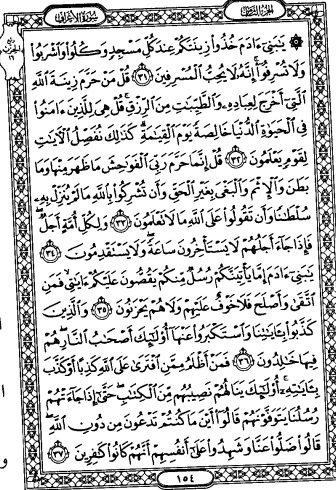 سورة الأعراف الجزء الثامن
۞ يَٰبَنِىٓ ءَادَمَ خُذُوا۟ زِينَتَكُمْ عِندَ كُلِّ مَسْجِدٍ وَكُلُوا۟ وَٱشْرَبُوا۟
وَلَا تُسْرِفُوٓا۟ ۚ إِنَّهُۥ لَا يُحِبُّ ٱلْمُسْرِفِينَ ٣١ قُلْ مَنْ حَرَّمَ زِينَةَ ٱللَّهِ
ٱلَّتِىٓ أَخْرَجَ لِعِبَادِهِۦ وَٱلطَّيِّبَٰتِ مِنَ ٱلرِّزْقِ ۚ قُلْ هِىَ لِلَّذِينَ ءَامَنُوا۟
فِى ٱلْحَيَوٰةِ ٱلدُّنْيَا خَالِصَةً يَوْمَ ٱلْقِيَٰمَةِ ۗ كَذَٰلِكَ نُفَصِّلُ ٱلْءَايَٰتِ
لِقَوْمٍ يَعْلَمُونَ ٣٢ قُلْ إِنَّمَا حَرَّمَ رَبِّىَ ٱلْفَوَٰحِشَ مَا ظَهَرَ مِنْهَا وَمَا
بَطَنَ وَٱلْإِثْمَ وَٱلْبَغْىَ بِغَيْرِ ٱلْحَقِّ وَأَن تُشْرِكُوا۟ بِٱللَّهِ مَا لَمْ يُنَزِّلْ بِهِۦ
سُلْطَٰنًا وَأَن تَقُولُوا۟ عَلَى ٱللَّهِ مَا لَا تَعْلَمُونَ ٣٣ وَلِكُلِّ أُمَّةٍ أَجَلٌ ۖ
فَإِذَا جَآءَ أَجَلُهُمْ لَا يَسْتَأْخِرُونَ سَاعَةً ۖ وَلَا يَسْتَقْدِمُونَ ٣٤
يَٰبَنِىٓ ءَادَمَ إِمَّا يَأْتِيَنَّكُمْ رُسُلٌ مِّنكُمْ يَقُصُّونَ عَلَيْكُمْ ءَايَٰتِى ۙ فَمَنِ
ٱتَّقَىٰ وَأَصْلَحَ فَلَا خَوْفٌ عَلَيْهِمْ وَلَا هُمْ يَحْزَنُونَ ٣٥ وَٱلَّذِينَ
كَذَّبُوا۟ بِـَٔايَٰتِنَا وَٱسْتَكْبَرُوا۟ عَنْهَآ أُو۟لَٰٓئِكَ أَصْحَٰبُ ٱلنَّارِ ۖ هُمْ
فِيهَا خَٰلِدُونَ ٣٦ فَمَنْ أَظْلَمُ مِمَّنِ ٱفْتَرَىٰ عَلَى ٱللَّهِ كَذِبًا أَوْ كَذَّبَ
بِـَٔايَٰتِهِۦٓ ۚ أُو۟لَٰٓئِكَ يَنَالُهُمْ نَصِيبُهُم مِّنَ ٱلْكِتَٰبِ ۖ حَتَّىٰٓ إِذَا جَآءَتْهُمْ
رُسُلُنَا يَتَوَفَّوْنَهُمْ قَالُوٓا۟ أَيْنَ مَا كُنتُمْ تَدْعُونَ مِن دُونِ ٱللَّهِ ۖ
قَالُوا۟ ضَلُّوا۟ عَنَّا وَشَهِدُوا۟ عَلَىٰٓ أَنفُسِهِمْ أَنَّهُمْ كَانُوا۟ كَٰفِرِينَ ٣٧
١٥٤